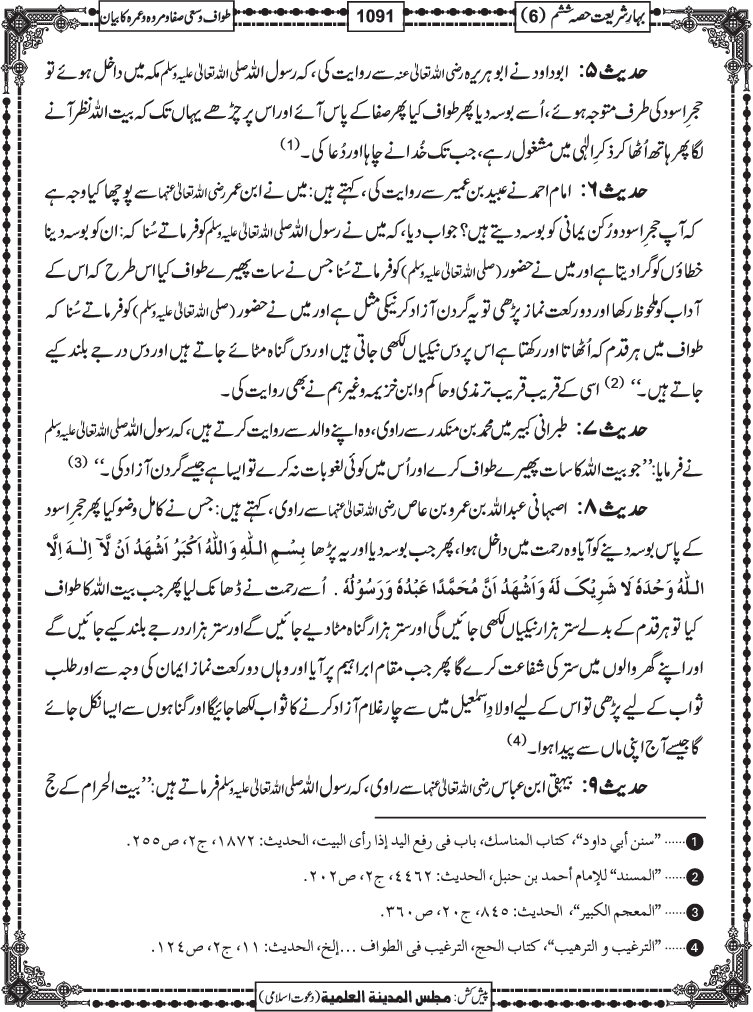 بہارِ شریعت حصہ ششم (6)
1091
طواف وسعی صفا و مروہ و عمرہ کا بیان
حدیث ۵: ابو داود نے ابو ہریرہ رضی اللہ تعالیٰ عنہ سے روایت کی، کہ رسول اللہ صلی اللہ تعالیٰ علیہ وسلم مکہ میں داخل ہوئے تو
حجرِ اسود کی طرف متوجہ ہوئے، اُسے بوسہ دیا پھر طواف کیا پھر صفا کے پاس آئے اور اس پر چڑھے یہاں تک کہ بیت اللہ نظر آنے
لگا پھر ہاتھ اُٹھا کر ذکرِ الٰہی میں مشغول رہے، جب تک خدا نے چاہا اور دُعا کی۔ (1)
حدیث ۶: امام احمد نے عبید بن عمیر سے روایت کی، کہتے ہیں: میں نے ابن عمر رضی اللہ تعالیٰ عنہما سے پوچھا کیا وجہ ہے
کہ آپ حجرِ اسود و رُکن یمانی کو بوسہ دیتے ہیں؟ جواب دیا، کہ میں نے رسول اللہ صلی اللہ تعالیٰ علیہ وسلم کو فرماتے سُنا کہ: ان کو بوسہ دینا
خطاؤں کو گرا دیتا ہے اور میں نے حضور (صلی اللہ تعالیٰ علیہ وسلم) کو فرماتے سُنا جس نے سات پھیرے طواف کیا اس طرح کہ اس کے
آداب کو ملحوظ رکھا اور دو رکعت نماز پڑھی تو یہ گردن آزاد کرنیکی مثل ہے اور میں نے حضور (صلی اللہ تعالیٰ علیہ وسلم) کو فرماتے سُنا کہ
طواف میں ہر قدم کہ اُٹھاتا اور رکھتا ہے اس پر دس نیکیاں لکھی جاتی ہیں اور دس گناہ مٹائے جاتے ہیں اور دس درجے بلند کیے
جاتے ہیں۔“ (2) اسی کے قریب قریب ترمذی و حاکم و ابن خزیمہ وغیرہم نے بھی روایت کی۔
حدیث ۷: طبرانی کبیر میں محمد بن منکدر سے راوی، وہ اپنے والد سے روایت کرتے ہیں، کہ رسول اللہ صلی اللہ تعالیٰ علیہ وسلم
نے فرمایا: ”جو بیت اللہ کا سات پھیرے طواف کرے اور اُس میں کوئی لغو بات نہ کرے تو ایسا ہے جیسے گردن آزاد کی۔“ (3)
حدیث ۸: اصبہانی عبداللہ بن عمرو بن عاص رضی اللہ تعالیٰ عنہما سے راوی، کہتے ہیں: جس نے کامل وضو کیا پھر حجرِ اسود
کے پاس بوسہ دینے کو آیا وہ رحمت میں داخل ہوا، پھر جب بوسہ دیا اور یہ پڑھا بِسْمِ اللّٰهِ وَاللّٰهُ اَكْبَرُ اَشْهَدُ اَنْ لَّا اِلٰهَ اِلَّا
اللّٰهُ وَحْدَهٗ لَا شَرِيْكَ لَهٗ وَاَشْهَدُ اَنَّ مُحَمَّدًا عَبْدُهٗ وَرَسُوْلُهٗ . اُسے رحمت نے ڈھانک لیا پھر جب بیت اللہ کا طواف
کیا تو ہر قدم کے بدلے ستر ہزار نیکیاں لکھی جائیں گی اور ستر ہزار گناہ مٹا دیے جائیں گے اور ستر ہزار درجے بلند کیے جائیں گے
اور اپنے گھر والوں میں ستر کی شفاعت کرے گا پھر جب مقام ابراہیم پر آیا اور وہاں دو رکعت نماز ایمان کی وجہ سے اور طلب
ثواب کے لیے پڑھی تو اس کے لیے اولادِ اسمٰعیل میں سے چار غلام آزاد کرنے کا ثواب لکھا جائیگا اور گناہوں سے ایسا نکل جائے
گا جیسے آج اپنی ماں سے پیدا ہوا۔ (4)
حدیث ۹: بیہقی ابن عباس رضی اللہ تعالیٰ عنہما سے راوی، کہ رسول اللہ صلی اللہ تعالیٰ علیہ وسلم فرماتے ہیں: ”بیت الحرام کے حج
1 ...... ”سنن أبي داود“، كتاب المناسك، باب فى رفع اليد إذا رأى البيت، الحديث: ١٨٧٢، ج٢، ص٢٥٥.
2 ...... ”المسند“ للإمام أحمد بن حنبل، الحديث: ٤٤٦٢، ج٢، ص٢٠٢.
3 ...... ”المعجم الكبير“، الحديث: ٨٤٥، ج٢٠، ص٣٦٠.
4 ...... ”الترغيب و الترهيب“، كتاب الحج، الترغيب فى الطواف ...إلخ، الحديث: ١١، ج٢، ص١٢٤.
پیش کش: مجلس المدينة العلمية (دعوت اسلامی)